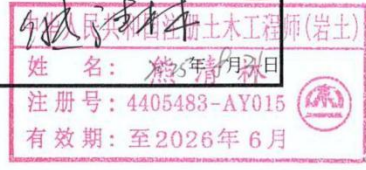 中华人民共和国注册土木工程师(岩土)
姓 名: 熊清林
年 月 日
注册号: 4405483-AY015
有效期: 至2026年6月